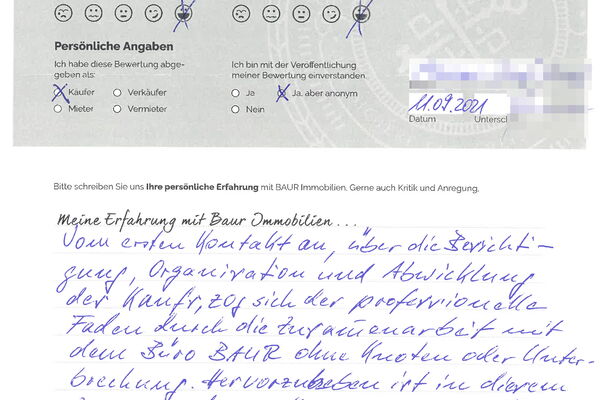 Persönliche Angaben
Ich habe diese Bewertung abge-
geben als:
Käufer
Verkäufer
Mieter
Vermieter
Ich bin mit der Veröffentlichung
meiner Bewertung einverstanden.
Ja
Ja, aber anonym
Nein
11.09.2021
Datum
Unterscl
Bitte schreiben Sie uns Ihre persönliche Erfahrung mit BAUR Immobilien. Gerne auch Kritik und Anregung.
Meine Erfahrung mit Baur Immobilien...
Vom ersten Kontakt an, über die Besichti-
gung, Organisation und Abwicklung
des Kaufs, zog sich der professionelle
Faden durch die Zusammenarbeit mit
dem Büro BAUR ohne Knoten oder Unter-
brechung. Hervorzuheben ist in diesem